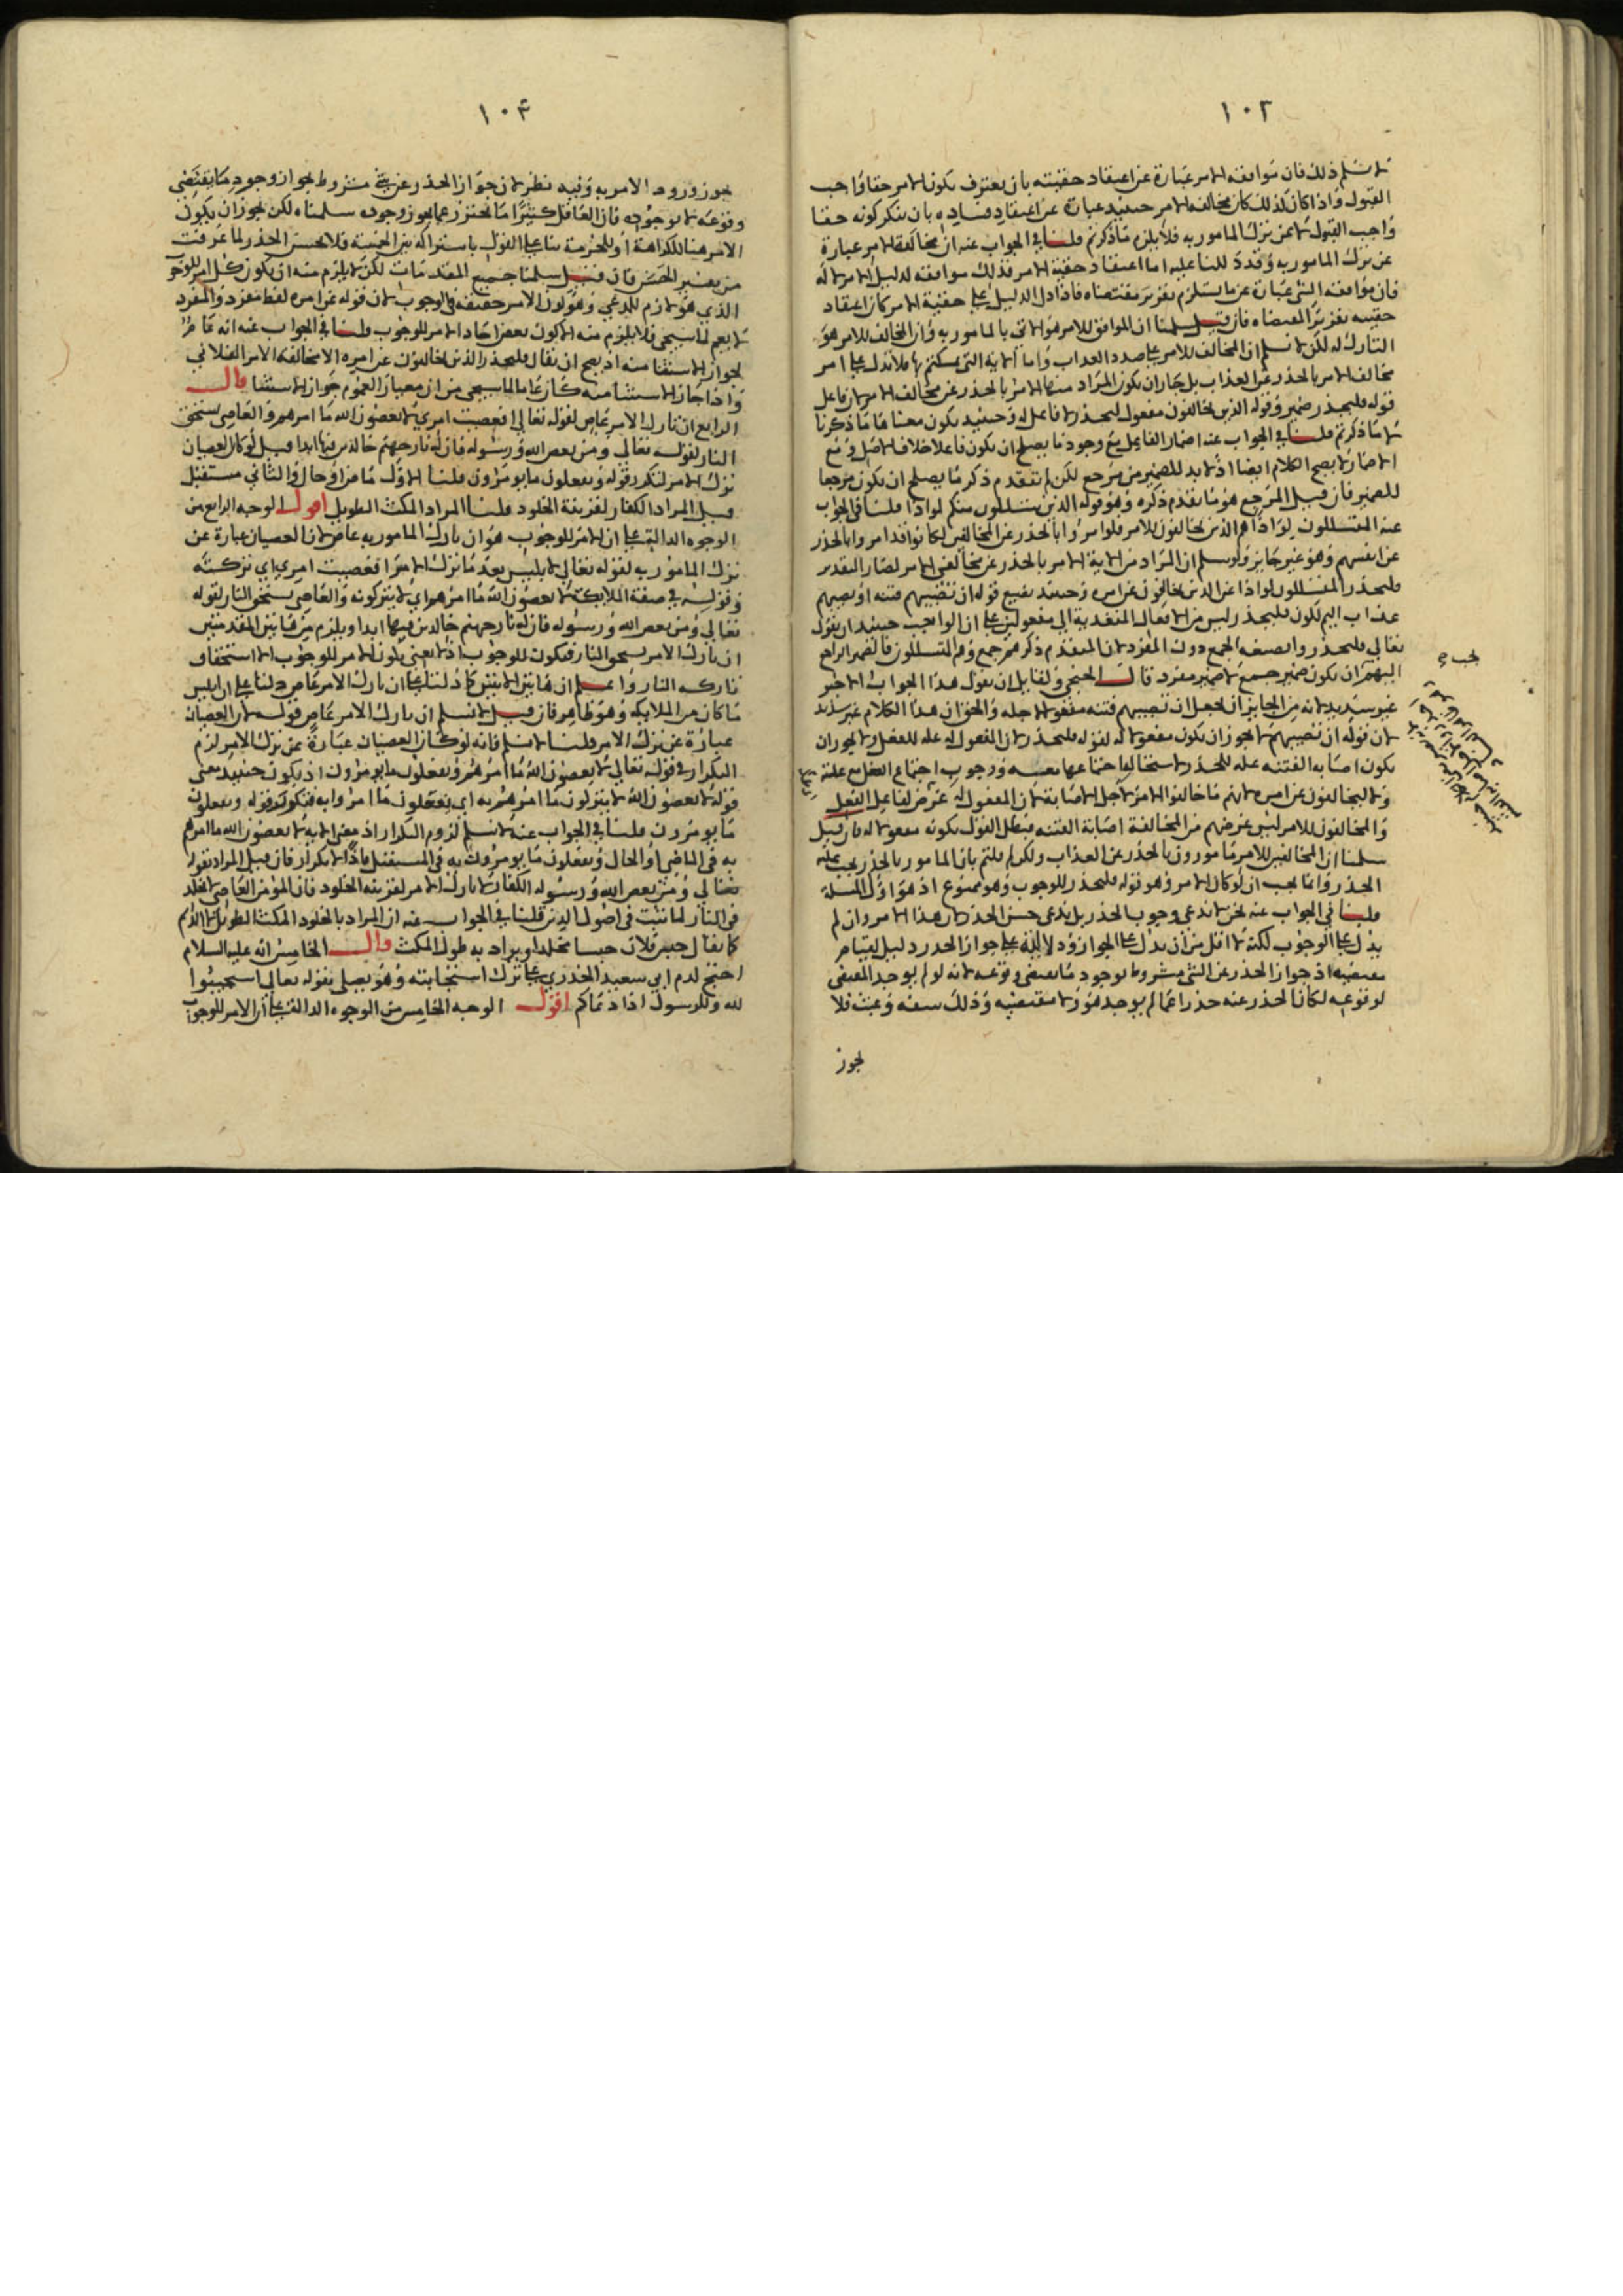 ١٠٢
لا نسلم ذلك فان موافقه الامر عبارة عن اعتقاد حقيته بان يعترف بكون الامر حقا واجب
القبول واذا كان كذلك كان مخالفه الامر حينئذ عبارة عن اعتقاد فساده بان ينكر كونه حقا
واجب القبول لا عن ترك المامور به فلا يلزم ما ذكرتم قلنا في الجواب عنه ان مخالفة الامر عبارة
عن ترك المامور به وقد دللنا عليه اما اعتقاد حقية الامر فذلك موافقه لدليل الامر لا له
فان موافقه الشي عبارة عن ما يستلزم تقرير مقتضاه فاذا دل الدليل على حقية الامر كان اعتقاد
حقيته تقرير المقتضاه فان قيل سلمنا ان الموافق للامر هو الاتي بالمامور به وان المخالف للامر هو
التارك له لكن لا نسلم ان المخالف للامر على صدد العذاب واما الاية التي تمسكتم بها فلا تدل على امر
مخالف الامر بالحذر عن العذاب بل جاز ان يكون المراد منها الامر بالحذر عن مخالف الامر لان فاعل
قوله فليحذر ضمير وقوله الذين يخالفون مفعول ليحذر لا فاعل له وحينئذ يكون معناها ما ذكرنا
لا ما ذكرتم قلنا في الجواب عنه اضمار الفاعل مع وجود ما يصلح ان يكون فاعلا خلاف الاصل ومع
الاضمار لا يصح الكلام ايضا اذ لا بد للضمير من مرجع لكن لم يتقدم ذكر ما يصلح ان يكون مرجعا
للضمير فان قيل المرجع هو ما تقدم ذكره وهو قوله الذين يتسللون منكم لواذا قلنا في الجواب
عنه المتسللون لواذا هم الذين يخالفون للامر فلو امروا بالحذر عن المخالفين لكانوا قد امروا بالحذر
عن انفسهم وهو غير جايز ولو سلم ان المراد من الاية الامر بالحذر عن مخالفي الامر لصار التقدير
فليحذر المتسللون لواذا عن الذين يخالفون عن امره وحينئذ يبقى قوله ان تصيبهم فتنه او يصيبهم
عذاب اليم لكون فليحذر ليس من الافعال المتعدية الى مفعولين على ان الواجب حينئذ ان يقول
تعالى فليحذروا بصيغه الجمع دون المفرد لان المتقدم ذكرهم جمع وهم المتسللون فالضمير الراجع
اليهم يجب ان يكون ضمير جمع لا ضمير مفرد قال الخنجي ولقايل ان يقول هذا الجواب الاخير
غير سديد لانه من الجايز ان يجعل ان تصيبهم فتنه مفعولا لاجله والحق ان هذا الكلام غير سديد
لان قوله ان تصيبهم لا يجوز ان يكون مفعولا له لقوله فليحذر لان المفعول له علة للفعل ولا يجوز ان
يكون اصابه الفتنه علة للحذر لاستحالة اجتماعها معه ووجوب اجتماع الفعل مع علته
ولا ليخالفون عن امره لانهم ما خالفوا الامر لاجل الاصابة لان المفعول له غرض لفاعل الفعل
والمخالفون للامر ليس غرضهم من المخالفة اصابة الفتنه فبطل القول بكونه مفعولا له فان قيل
سلمنا ان المخالفين للامر مامورون بالحذر عن العذاب ولكن لم قلتم بان المامور بالحذر يجب عليه
الحذر وانما يجب ان لو كان الامر وهو قوله فليحذر للوجوب وهو ممنوع اذ هو اول المسلة
قلنا في الجواب عنه نحن لا ندعي وجوب الحذر بل ندعي حسن الحذر لان هذا الامر وان لم
يدل على الوجوب لكنه لا اقل من ان يدل على الجواز ودلالته على جواز الحذر دليل لقيام
مقتضيه اذ جواز الحذر عن الشي مشروط بوجود ما يقتضي وقوعه لانه لو لم يوجد المقتضي
لوقوعه لكان الحذر عنه حذرا عما لم يوجد هو ولا مقتضيه وذلك سفه وعبث فلا
يجوز
يجب
١٠٤
يجوز ورود الامر به وفيه نظر لان جواز الحذر عن شي مشروط بجواز وجود ما يقتضي
وقوعه لا بوجوده فان العاقل كثيرا ما يحترز عما يجوز وجوده سلمناه لكن يجوز ان يكون
الامر هنا للكراهة او للحرمة بنا على القول باشتراكه بين الخمسة فلا يحسن الحذر لما عرفت
من تفسير الحسن فان قيل سلمنا جميع المقدمات لكن لا يلزم منه ان يكون كل امر للوجوب
الذي هو لازم للمدعي وهو كون الامر حقيقه في الوجوب لان قوله عن امره لفظ مفرد والمفرد
لا يعم لما سيجي فلا يلزم منه الا كون بعض احاد الامر للوجوب قلنا في الجواب عنه انه عام
لجواز الاستثنا منه اذ يصح ان يقال فليحذر الذين يخالفون عن امره الا مخالفة الامر الفلاني
واذا جاز الاستثنا منه كان عاما لما سيجي من ان معيار العموم جواز الاستثنا قال
الرابع ان تارك الامر عاص لقوله تعالى افعصيت امري لا يعصون الله ما امرهم والعاصي يستحق
النار لقوله تعالى ومن يعص الله ورسوله فان له نار جهنم خالدين فيها ابدا قيل لو كان العصيان
ترك الامر لتكرر قوله ويفعلون ما يومرون قلنا الاول ماض او حال والثاني مستقبل
قيل المراد الكفار لقرينة الخلود قلنا المراد المكث الطويل اقول الوجه الرابع من
الوجوه الدالة على ان الامر للوجوب هو ان تارك المامور به عاص لان العصيان عبارة عن
ترك المامور به لقوله تعالى لابليس بعد ما ترك الامر افعصيت امري اي تركته
وقوله في صفة الملايكة لا يعصون الله ما امرهم اي لا يتركونه والعاصي يستحق النار لقوله
تعالى ومن يعص الله ورسوله فان له نار جهنم خالدين فيها ابدا ويلزم من هاتين المقدمتين
ان تارك الامر يستحق النار فيكون للوجوب اذ لا يعنى بكون الامر للوجوب الا استحقاق
تاركه النار واعلم ان هاتين الايتين كما دلتا على ان تارك الامر عاص دلتا على ان ابليس
ما كان من الملايكه وهو ظاهر فان قيل لا نسلم ان تارك الامر عاص قوله لان العصيان
عبارة عن ترك الامر قلنا لا نسلم فانه لو كان العصيان عبارة عن ترك الامر لزم
التكرار في قوله تعالى لا يعصون الله ما امرهم ويفعلون ما يومرون اذ يكون حينئذ معنى
قوله لا يعصون الله لا يتركون ما امرهم به اي يفعلون ما امروا به فتكرر قوله ويفعلون
ما يومرون قلنا في الجواب عنه لا نسلم لزوم التكرار اذ معنى الاية لا يعصون الله ما امرهم
به في الماضي او الحال ويفعلون ما يومرون به في المستقبل فاذا لا تكرار فان قيل المراد بقوله
تعالى ومن يعص الله ورسوله الكفار لا تارك الامر لقرينة الخلود فان المومن العاصي لا يخلد
في النار لما ثبت في اصول الدين قلنا في الجواب عنه ان المراد بالخلود المكث الطويل لا الدايم
كما يقال حبس فلان حبسا مخلدا ويراد به طول المكث قال الخامس انه عليه السلام
احتج لذم ابي سعيد الخدري على ترك استجابته وهو يصلي بقوله تعالى استجيبوا
لله وللرسول اذا دعاكم اقول الوجه الخامس من الوجوه الدالة على ان الامر للوجوب